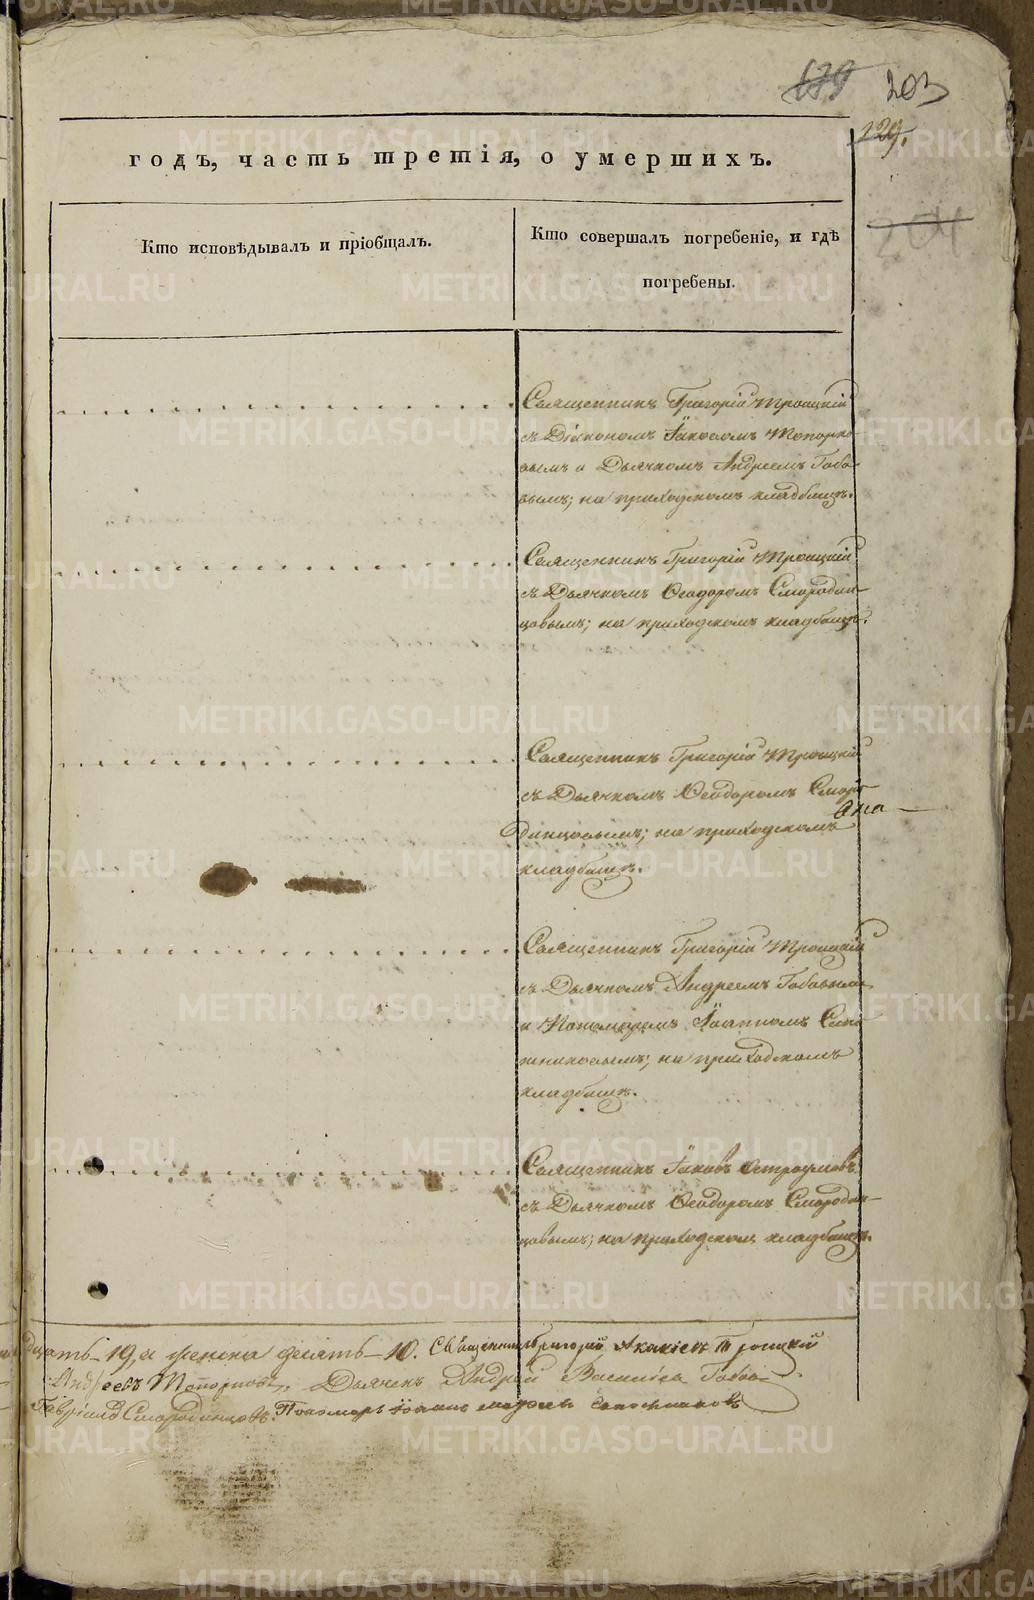 179 203
129.
годъ, часть третія, о умершихъ.
204
Кто исповѣдывалъ и пріобщалъ.
Кто совершалъ погребеніе, и гдѣ
погребены.
Священникъ Григорій Троицкій
съ Діакономъ Іаковомъ Топорко-
вымъ и Дьячкомъ Андреемъ Габо-
вымъ; на приходскомъ кладбищѣ.
Священникъ Григорій Троицкій
съ Дьячкомъ Ѳеодоромъ Смородин-
цовымъ; на приходскомъ кладбищѣ.
Священникъ Григорій Троицкій
съ Дьячкомъ Ѳеодоромъ Сморо
динцовымъ; на приходскомъ
кладбищѣ.
Священникъ Григорій Троицкій
съ Дьячкомъ Андреемъ Габовымъ
и Пономаремъ Іоанномъ Сапо
жниковымъ; на приходскомъ
кладбищѣ.
Священникъ Іаковъ Остроумовъ
съ Дьячкомъ Ѳеодоромъ Смородин-
цовымъ; на приходскомъ кладбищѣ.
дцать - 19, а женска десять - 10. Священникъ Григорій Акакіевъ Троицкій
Андреевъ Топорковъ. Дьячекъ Андрей Габовъ
Гавріилов Смородинцовъ. Пономарь Іоаннъ Сапожниковъ
METRIKI.GASO-URAL.RU